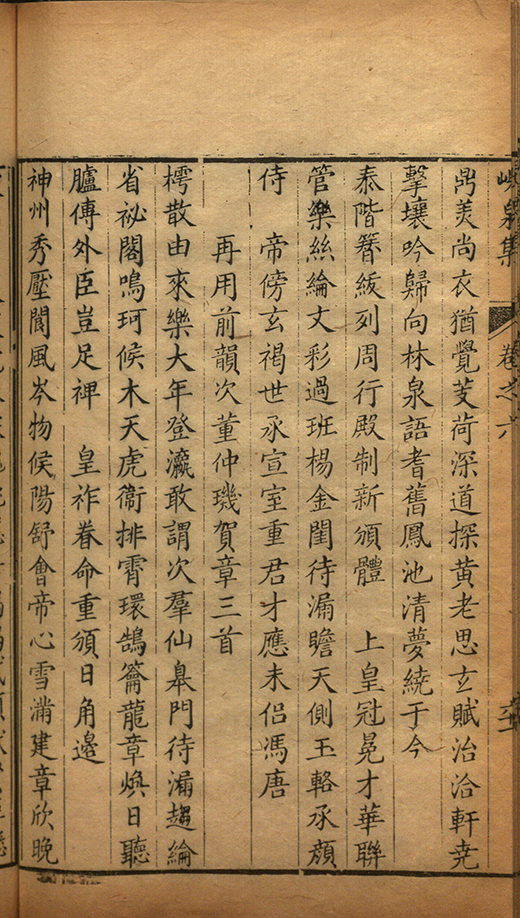 峴泉集 卷之六
鼎羙尚衣猶覺芰荷深道探黃老思玄賦治洽軒堯
擊壤吟歸向林泉語耆舊鳳池清夢繞于今
泰階簪紱列周行殿制新頒體 上皇冠冕才華聯
管樂絲綸文彩過班楊金閨待漏瞻天側玉輅承顏
侍 帝傍玄禇世承宣室重君才應未侣馮唐
再用前韻次董仲璣賀章三首
樗散由來樂大年登瀛敢謂次羣仙皐門待漏趨綸
省祕閣鳴珂候木天虎衛排霄環鵠籥龍章煥日聽
臚傳外臣豈足裨 皇祚眷命重頒日角邊
神州秀壓閬風岑物候陽舒會帝心雪滿建章欣晚